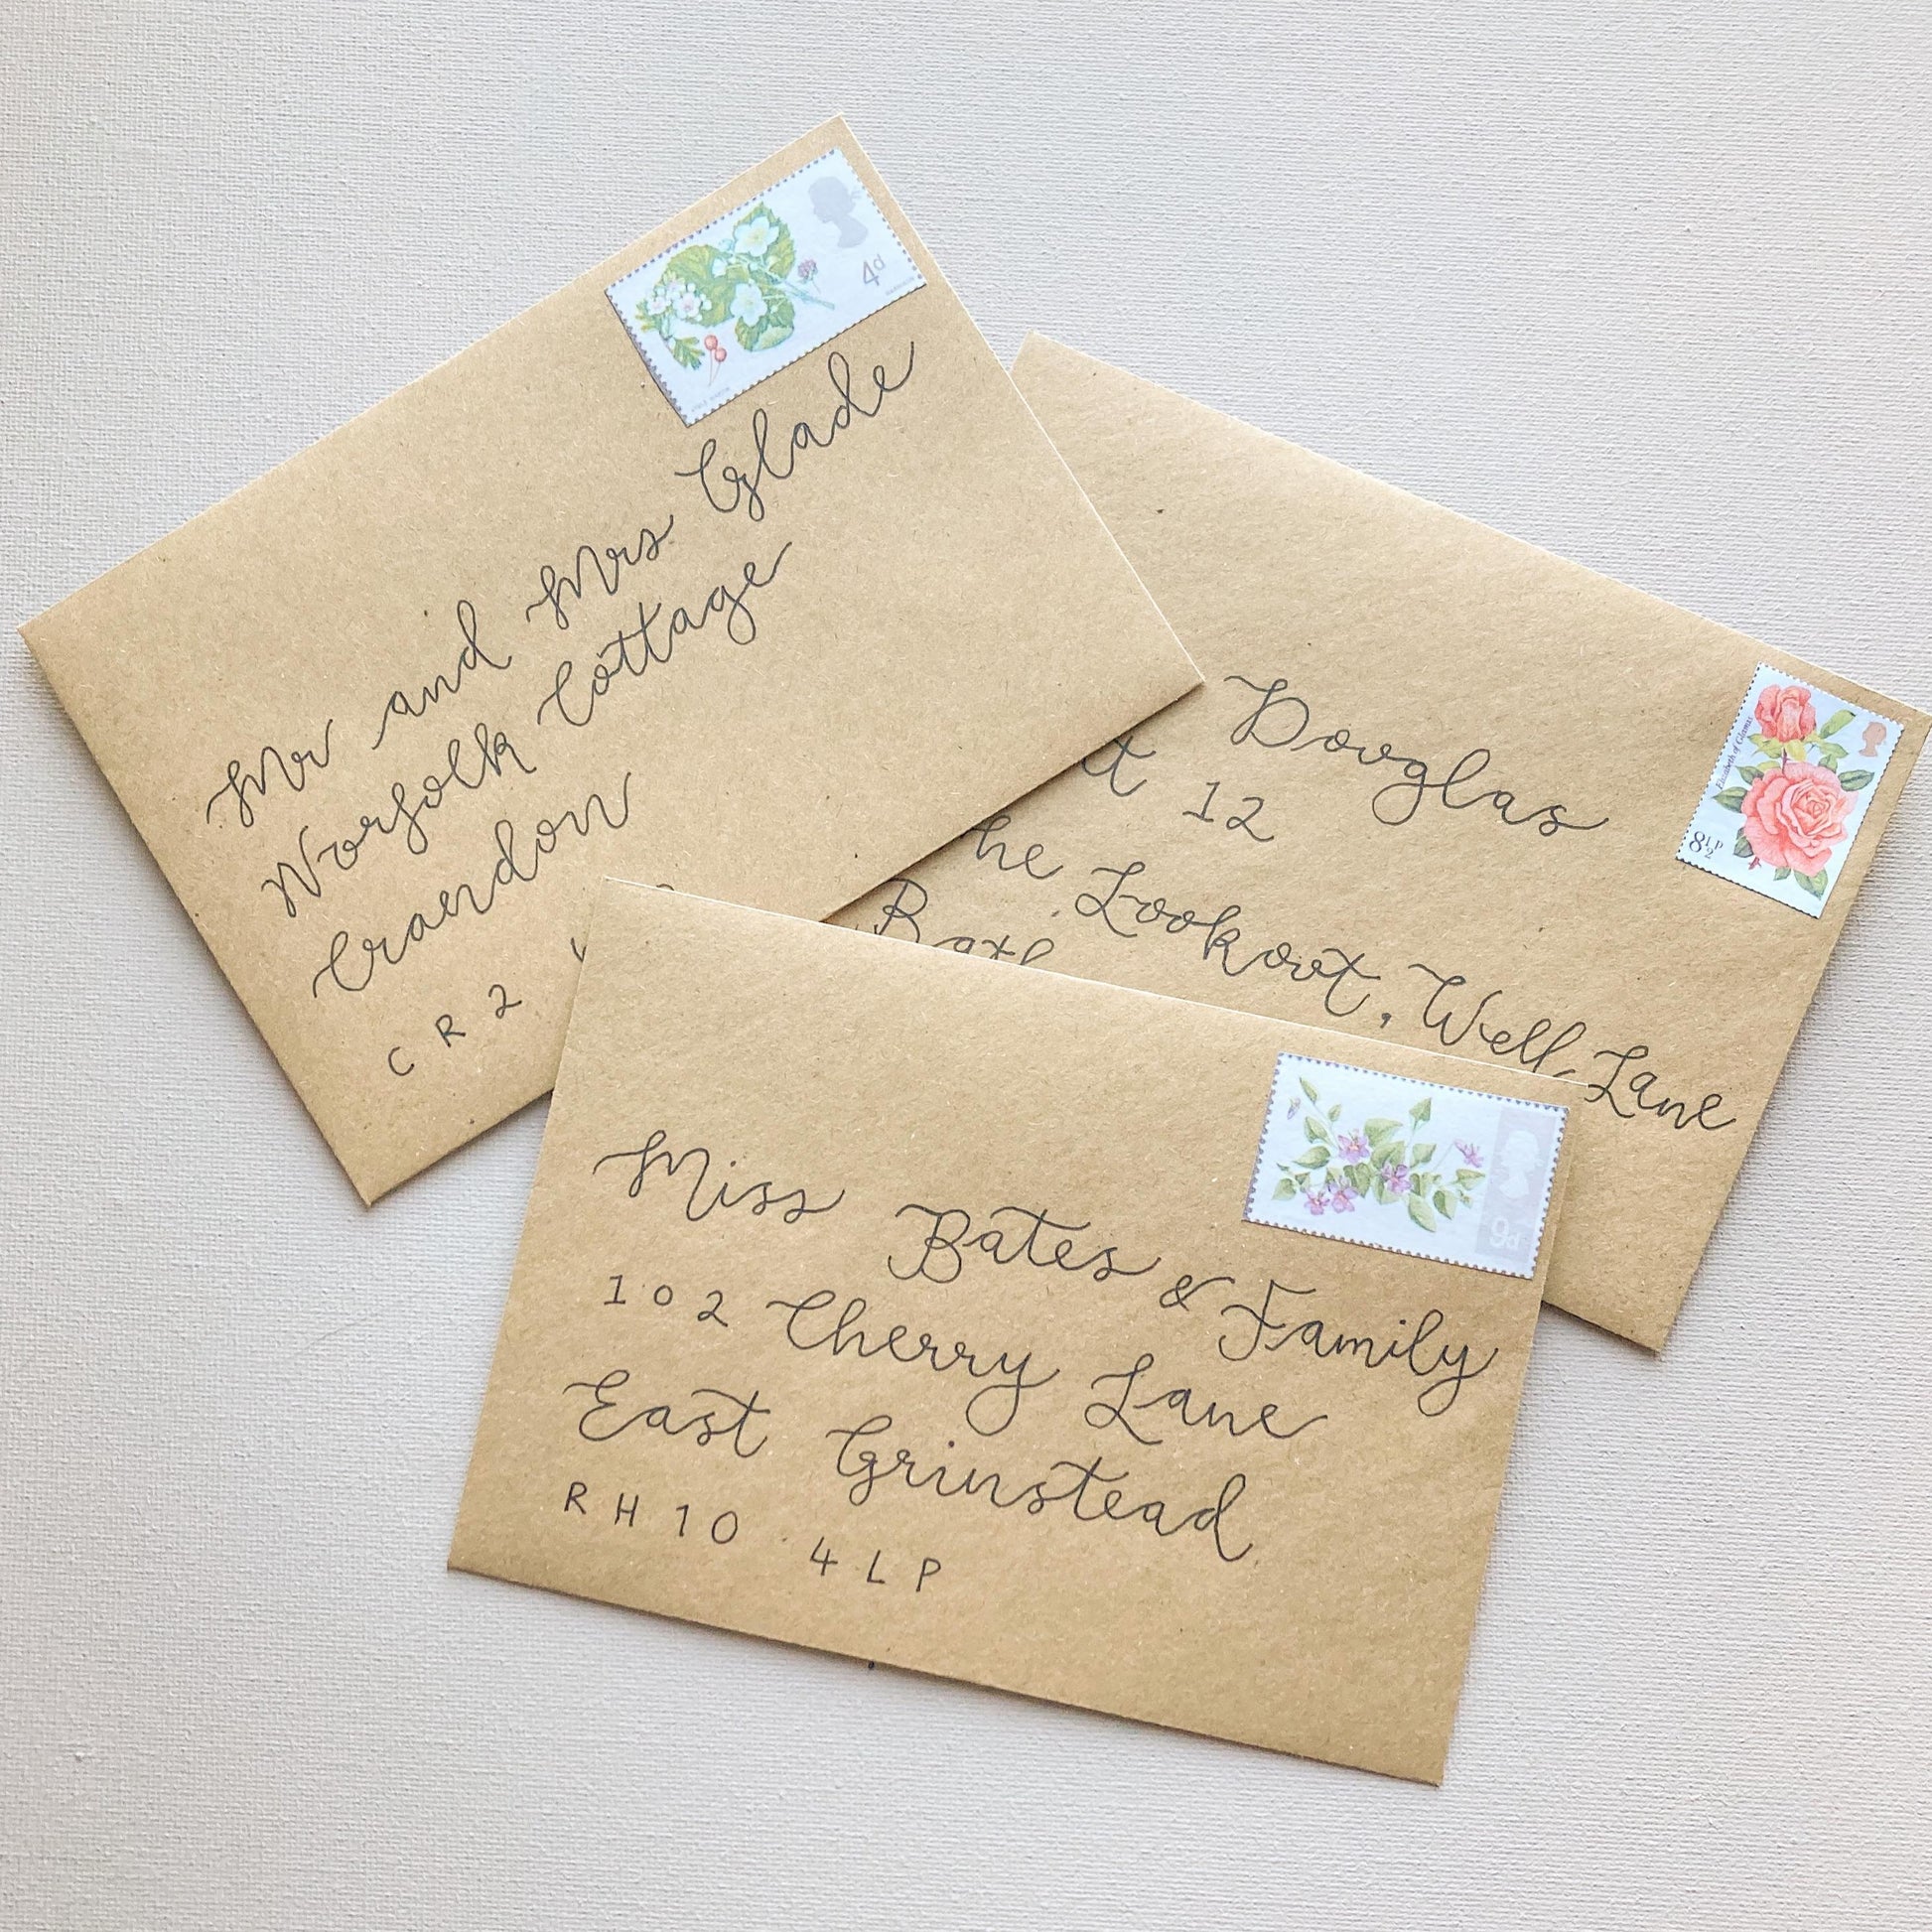 4d
Mr and Mrs Glade
Norfolk Cottage
Craendon
CR2
Elizabeth of Glamis
8½P
Douglas
12
he Lookout, Well Lane
Bath
9d
Miss Bates & Family
102 Cherry Lane
East Grinstead
RH10 4LP